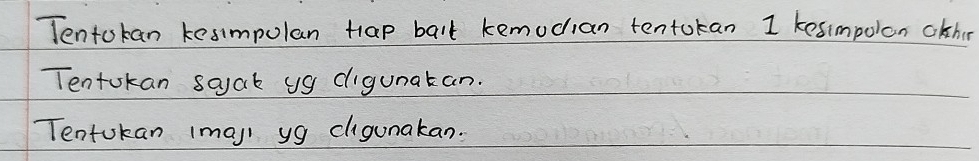 Tentukan kesimpulan tiap bait kemudian tentukan 1 kesimpulan akhir
Tentukan sajak yg digunakan.
Tentukan imaji yg digunakan.